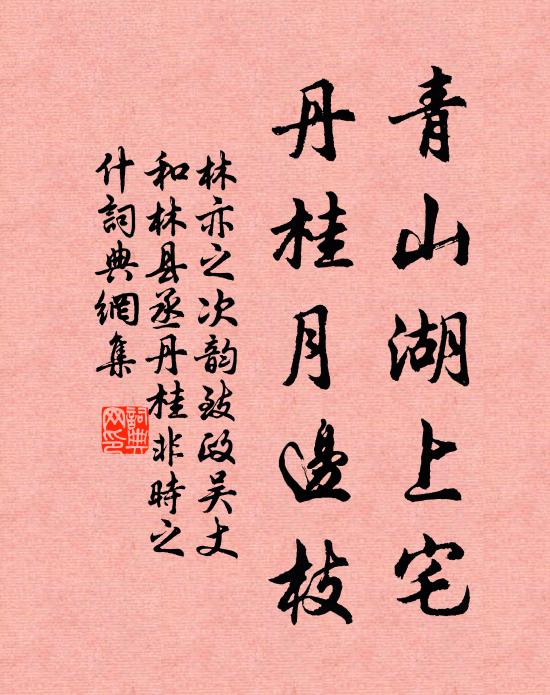 青山湖上宅
丹桂月邊枝
林亦之次韵致政吴丈
和林县丞丹桂非時之
什詞典網集
詞典
网印